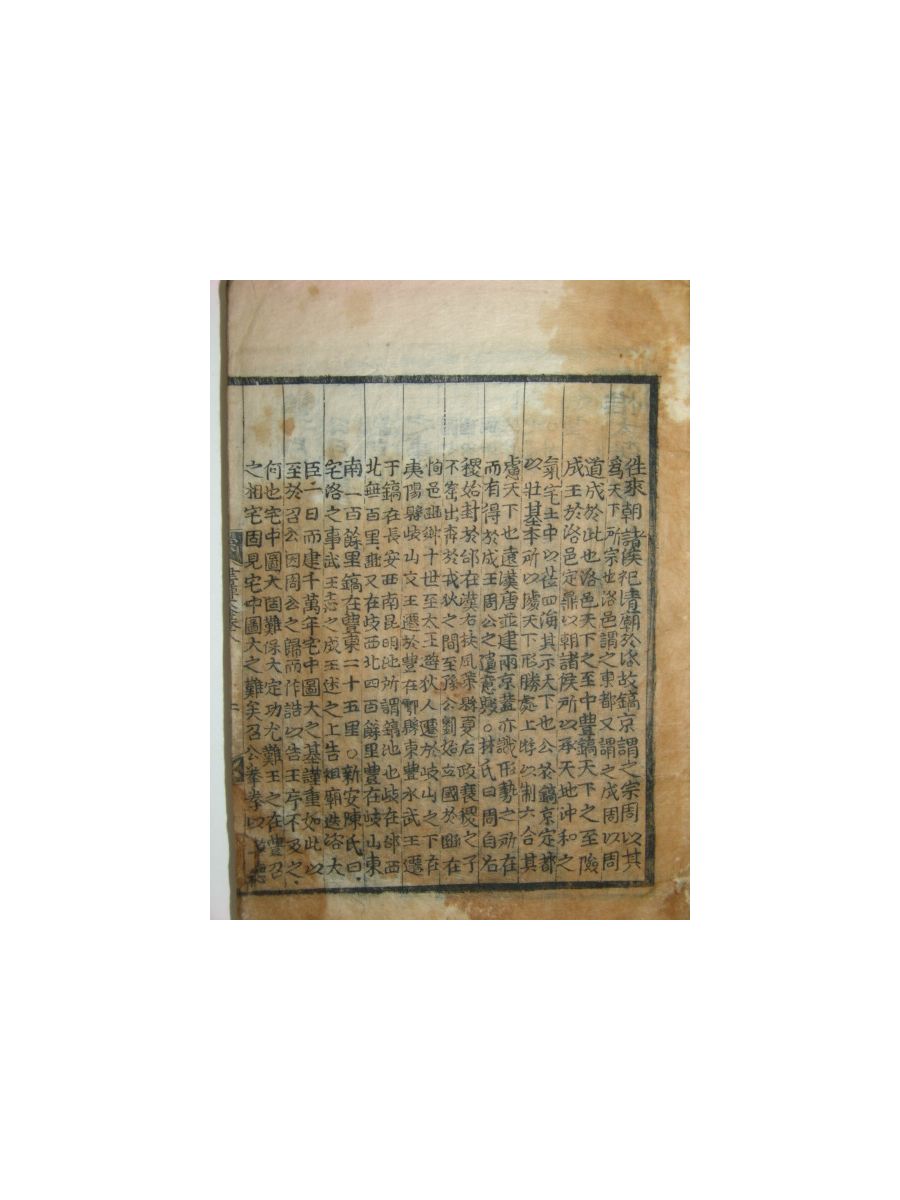 往來朝諸侯祀清廟於洛故鎬京謂之宗周以其
爲天下所宗也洛邑謂之東都又謂之成周以周
道成於此也洛邑天下之至中豐鎬天下之至險
成王於洛邑定鼎以朝諸侯所以承天地沖和之
氣宅土中以莅四海其示天下也公於鎬京定都
以壯基本所以據天下形勝處上游以制六合其
慮天下也遠漢唐並建兩京蓋亦識形勢之所在
而有得於成王周公之遺意歟○林氏曰周自后
稷始封於邰在漢右扶風斄縣夏后政衰稷之子
不窋出奔於戎狄之間至孫公劉始立國於豳在
栒邑豳鄉十世至太王避狄人遷於岐山之下在
美陽縣岐山文王遷於豐在鄠縣東豐水武王遷
于鎬在長安西南昆明池所謂鎬池也岐在邰西
北無百里豳又在岐西北四百餘里豐在岐山東
南一百餘里鎬在豐東二十五里○新安陳氏曰
宅洛之事武王志之成王述之上告祖廟迭咨大
臣一日而建千萬年宅中圖大之基謹重如此以
至於召公因周公之歸而作誥以告王序不及之
何也宅中圖大固難保大定功尤難王之在豐召
之相宅固見宅中圖大之難矣召公拳拳以